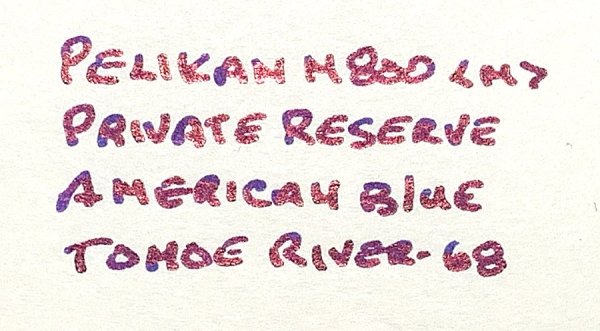 PELIKAN M800 <M>
PRIVATE RESERVE
AMERICAN BLUE
TOMOE RIVER-68